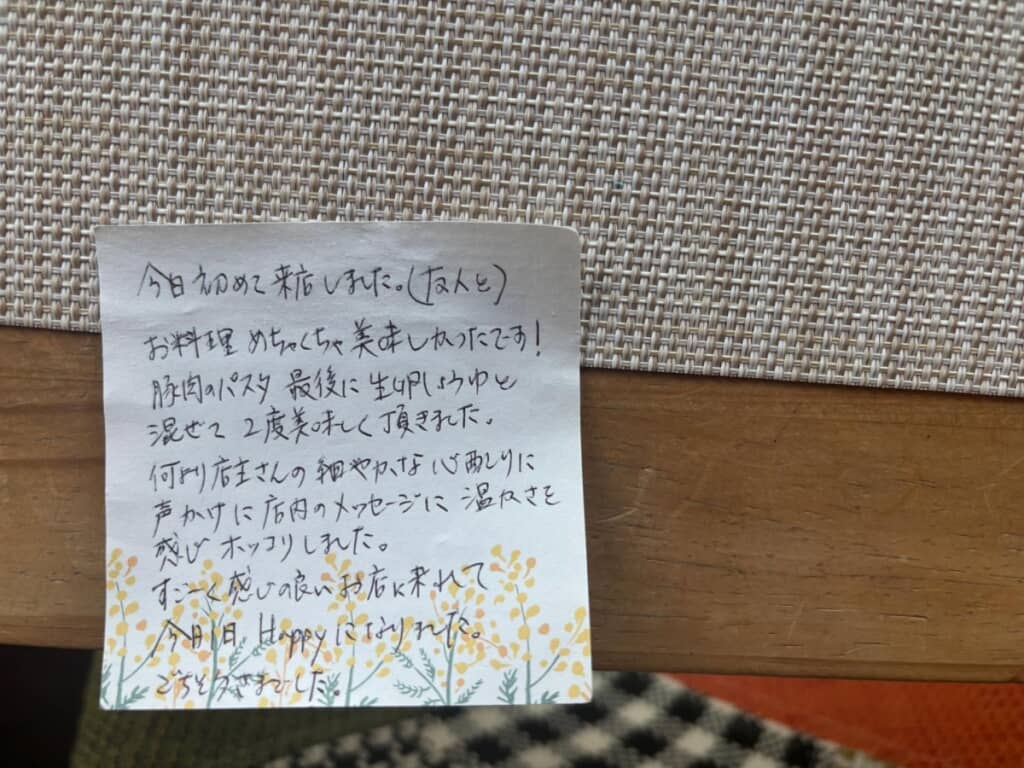 今日初めて来店しました。(友人と)
お料理めちゃくちゃ美味しかったです!
豚肉のパスタ 最後に生卵しょうゆと
混ぜて2度美味しく頂きました。
何より店主さんの細やかな心配りに
声かけに店内のメッセージに温かさを
感じホッコリしました。
すごーく感じの良いお店に来れて
今日1日 Happyになりました。
ごちそうさまでした。